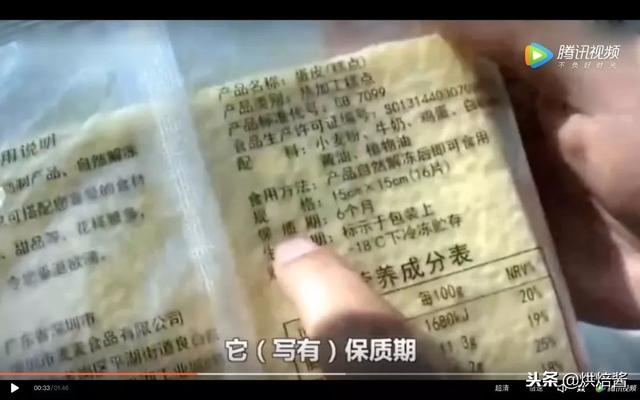 腾讯视频
不负好时光
产品名称：蛋皮(糕点)
产品类别：热加工糕点
产品标准代号：GB 7099
食品生产许可证编号：SC1314403079
配 料：小麦粉、牛奶、鸡蛋、白
黄油、植物油
食用方法：产品自然解冻后即可食用
规 格：15cm×15cm(16片)
保质期：6个月
期：标示于包装上
-18℃下冷冻贮存
养成分表
每100g NRV%
1680kJ 20%
3g 19%
25%
用说明
制产品、自然解冻
可搭配您喜爱的食料
、甜品等，花样繁多，
广东省深圳市
食品有限公司
区平湖街道良白
它（写有）保质期
00:33/01:46
超清
倍速
腾讯视频
头条@烘焙酱